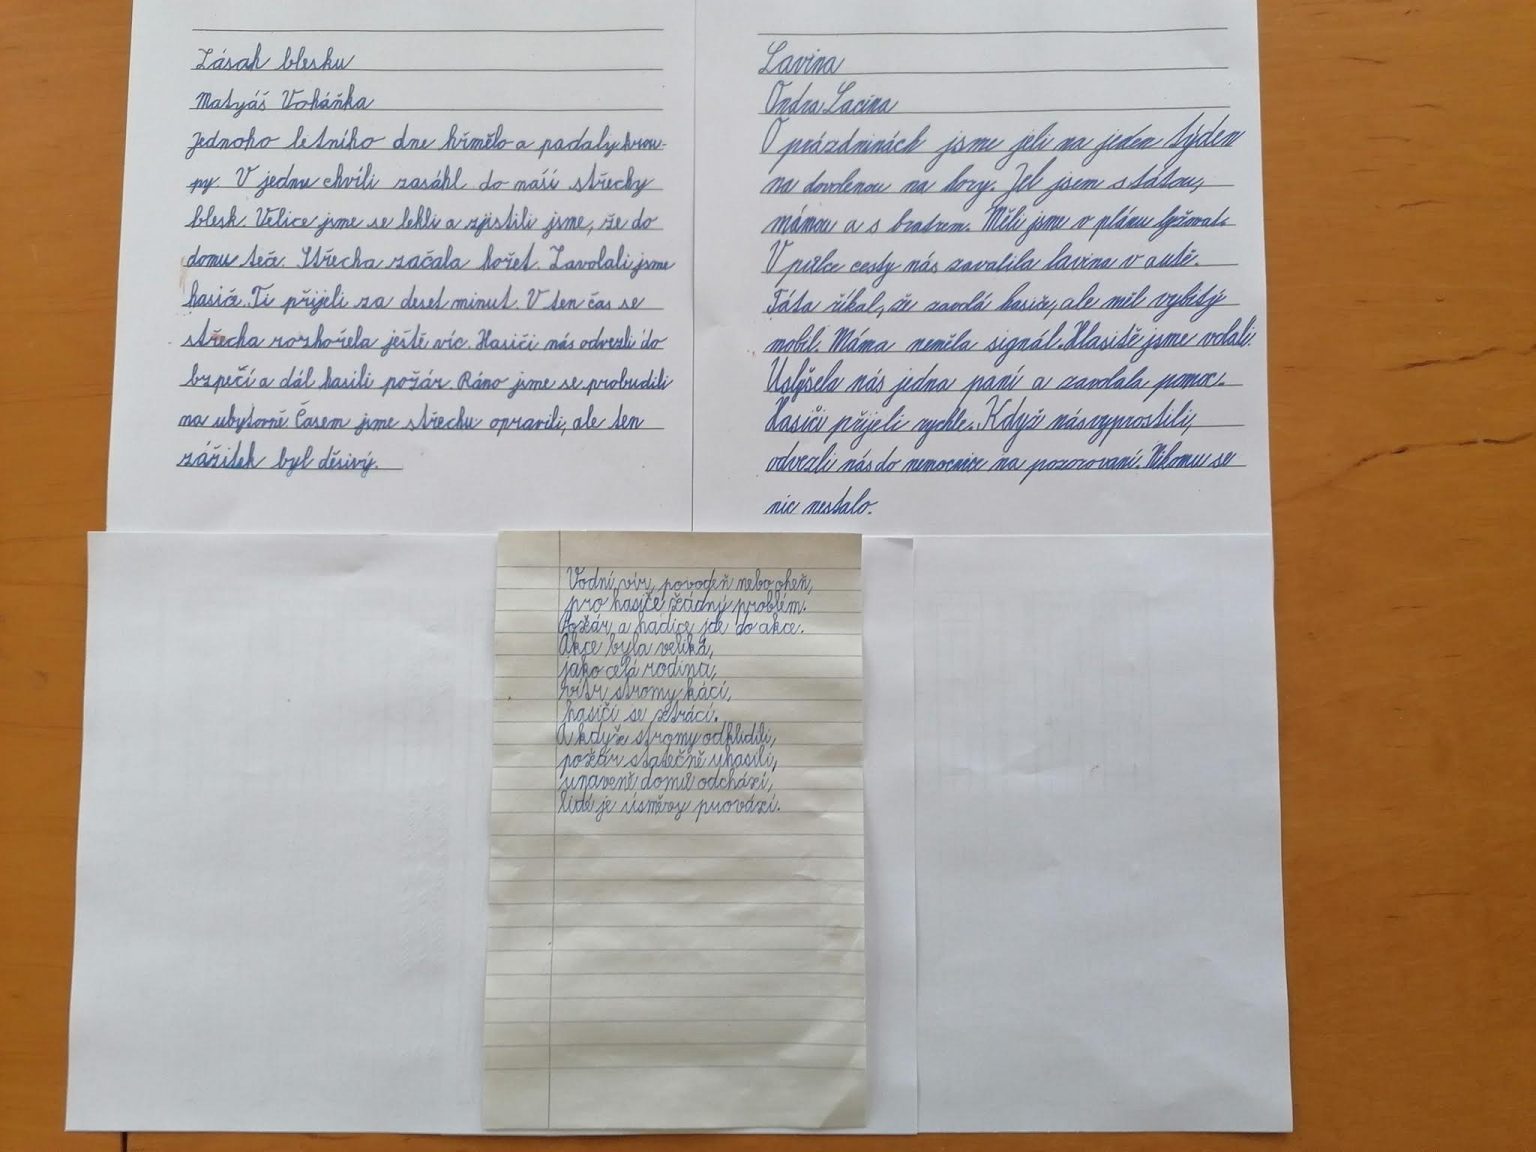 Zásah blesku
Matyáš Voháňka
Jednoho letního dne hřmělo a padaly krou-
py. V jednu chvíli zasáhl do naší střechy
blesk. Velice jsme se lekli a zjistili jsme, že do
domu teče. Střecha začala hořet. Zavolali jsme
hasiče. Ti přijeli za deset minut. V ten čas se
střecha rozhořela ještě víc. Hasiči nás odvezli do
bzpečí a dál hasili požár. Ráno jsme se probudili
na ubytovně. Časem jsme střechu opravili, ale ten
zážitek byl děsivý.
Lavina
Ondra Lacina
O prázdninách jsme jeli na jeden týden
na dovolenou na hory. Jel jsem s tátou,
mámou a s bratrem. Měli jsme v plánu lyžovat.
V půlce cesty nás zavalila lavina v autě.
Táta říkal, že zavolá hasiče, ale měl vybitý
mobil. Máma neměla signál. Hlasitě jsme volali.
Uslyšela nás jedna paní a zavolala pomoc.
Hasiči přijeli rychle. Když nás vyprostili,
odvezli nás do nemocnice na pozorovaní. Nikomu se
nic nestalo.
Vodní vír, povodeň nebo oheň,
pro hasiče žádný problém.
Požár a hadice jde do akce.
Akce byla veliká,
jako celá rodina,
vítr stromy kácí,
hasiči se ztrácí.
A když stromy odklidili,
požár statečně uhasili,
unaveně domů odchází,
lidé je úsměvy provází.